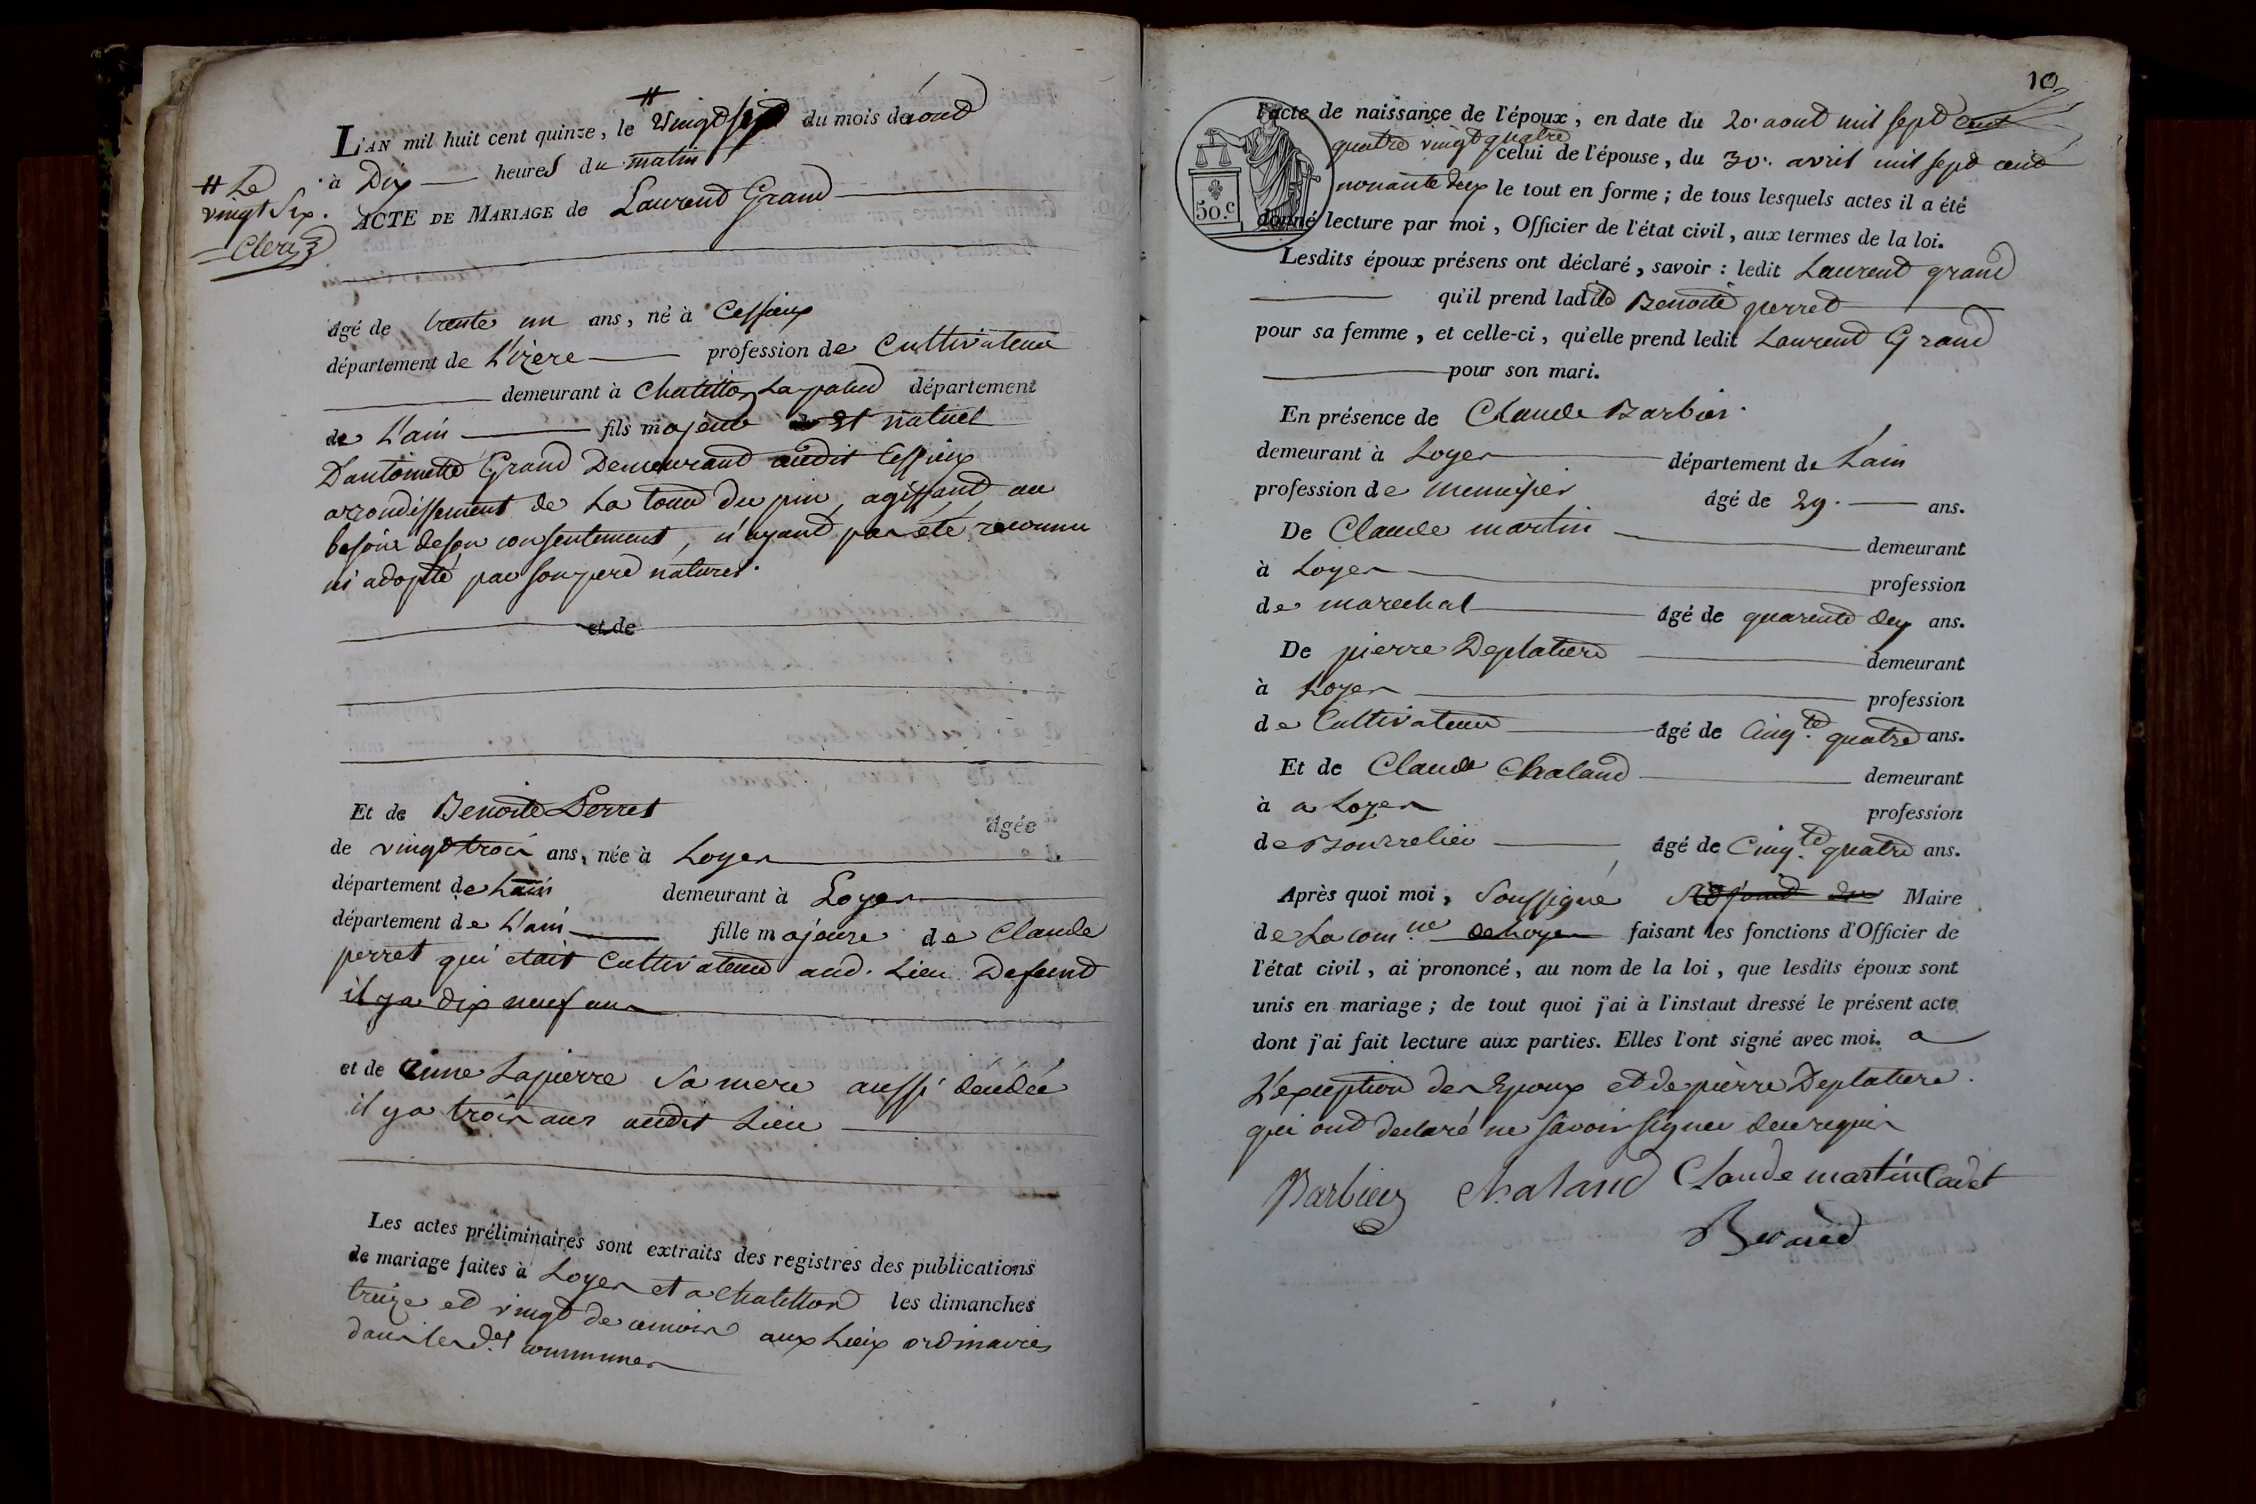 L'AN mil huit cent quinze, le # vingt six du mois daoud
# Le
vingt six.
Clerc
à Dix heures du matin
ACTE DE MARIAGE de Laurend Grand
âgé de trente un ans, né à Cessieux
département de L'izere profession de Cultivateur
demeurant à Chatillon Lapalud département
de L'ain fils majeur et natuel
D'antoinette Grand Demeurand audit Cessieux
arrondissement de La tour du pin, agissant au
besoin de son consentement, n'ayant pas été reconnu
ni adopté par son pere naturel.
et de
Et de Benoite Perret
âgée
de vingt trois ans, née à Loyes
département de Lain demeurant à Loyes
département de L'ain fille majeure de Claude
perret qui etait Cultivateur aud. Lieu Defunt
il y a dix neuf ans
et de anne Lapierre Sa mere aussi décédée
il y a trois ans audit Lieu
Les actes préliminaires sont extraits des registres des publications
de mariage faites à Loyes et a chatillon les dimanches
treize et vingt de ce mois aux Lieix ordinaires
dans les d.es communes
10
l'acte de naissance de l'époux, en date du 20. aout mil sept cent
quatre vingt quatre celui de l'épouse, du 30. avril mil sept cent
nonante deux le tout en forme; de tous lesquels actes il a été
50.c
donné lecture par moi, Officier de l'état civil, aux termes de la loi.
Lesdits époux présens ont déclaré, savoir : ledit Laurent grand
qu'il prend ladite Benoite perret
pour sa femme, et celle-ci, qu'elle prend ledit Laurent Grand
pour son mari.
En présence de Claude Barbier.
demeurant à Loyes département de Lain
profession de menuisier âgé de 29. ans.
De Claude martin demeurant
à Loyes profession
de marechal âgé de quarente deux ans.
De pierre Deplatiere demeurant
à Loyes profession
de Cultivateur âgé de Cinq.te quatre ans.
Et de Claude Chaland demeurant
à a Loyes profession
de Bourrelier âgé de Cinq.te quatre ans.
Après quoi moi, Soussigné Maire
de La com.ne de Loyes faisant les fonctions d'Officier de
l'état civil, ai prononcé, au nom de la loi, que lesdits époux sont
unis en mariage; de tout quoi j'ai à l'instaut dressé le présent acte
dont j'ai fait lecture aux parties. Elles l'ont signé avec moi. a
L'exception des Epoux et de pierre Deplatiere.
qui ont declaré ne savoir signer de ce requis
Barbier chaland Claude martin Cadet